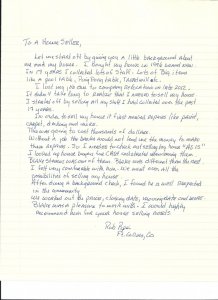 To A Home Seller,
Let me start off by giving you a little background about
me and my house. I bought my house in 1998 brand new.
In 19 years I collected lots of stuff. Lots of big items
like a pool table, Ping Pong table, Treadmill etc.
I lost my job due to company relocation in late 2012.
It didn't take long to realize that I needed to sell my house.
I started off by selling all my stuff I had collected over the past
19 years.
In order to sell my house it first needed repairs like paint,
carpet, and
This was going to cost thousands of dollars.
Without a job the banks would not loan me the money to make
them repairs. So I needed to check out selling my home "AS IS"
I looked up house buying for cash and started interviewing them.
Blake was one of them. Blake was different than the rest
I felt very comfortable with him. We went over all the
possibilities of selling my house
After doing a background check, I found he is well respected
in the community
We worked out the price, closing date, moving date and more.
Blake was a pleasure to work with. I would highly
recommend him for your house selling needs
Rob
Ft. Collins, Co